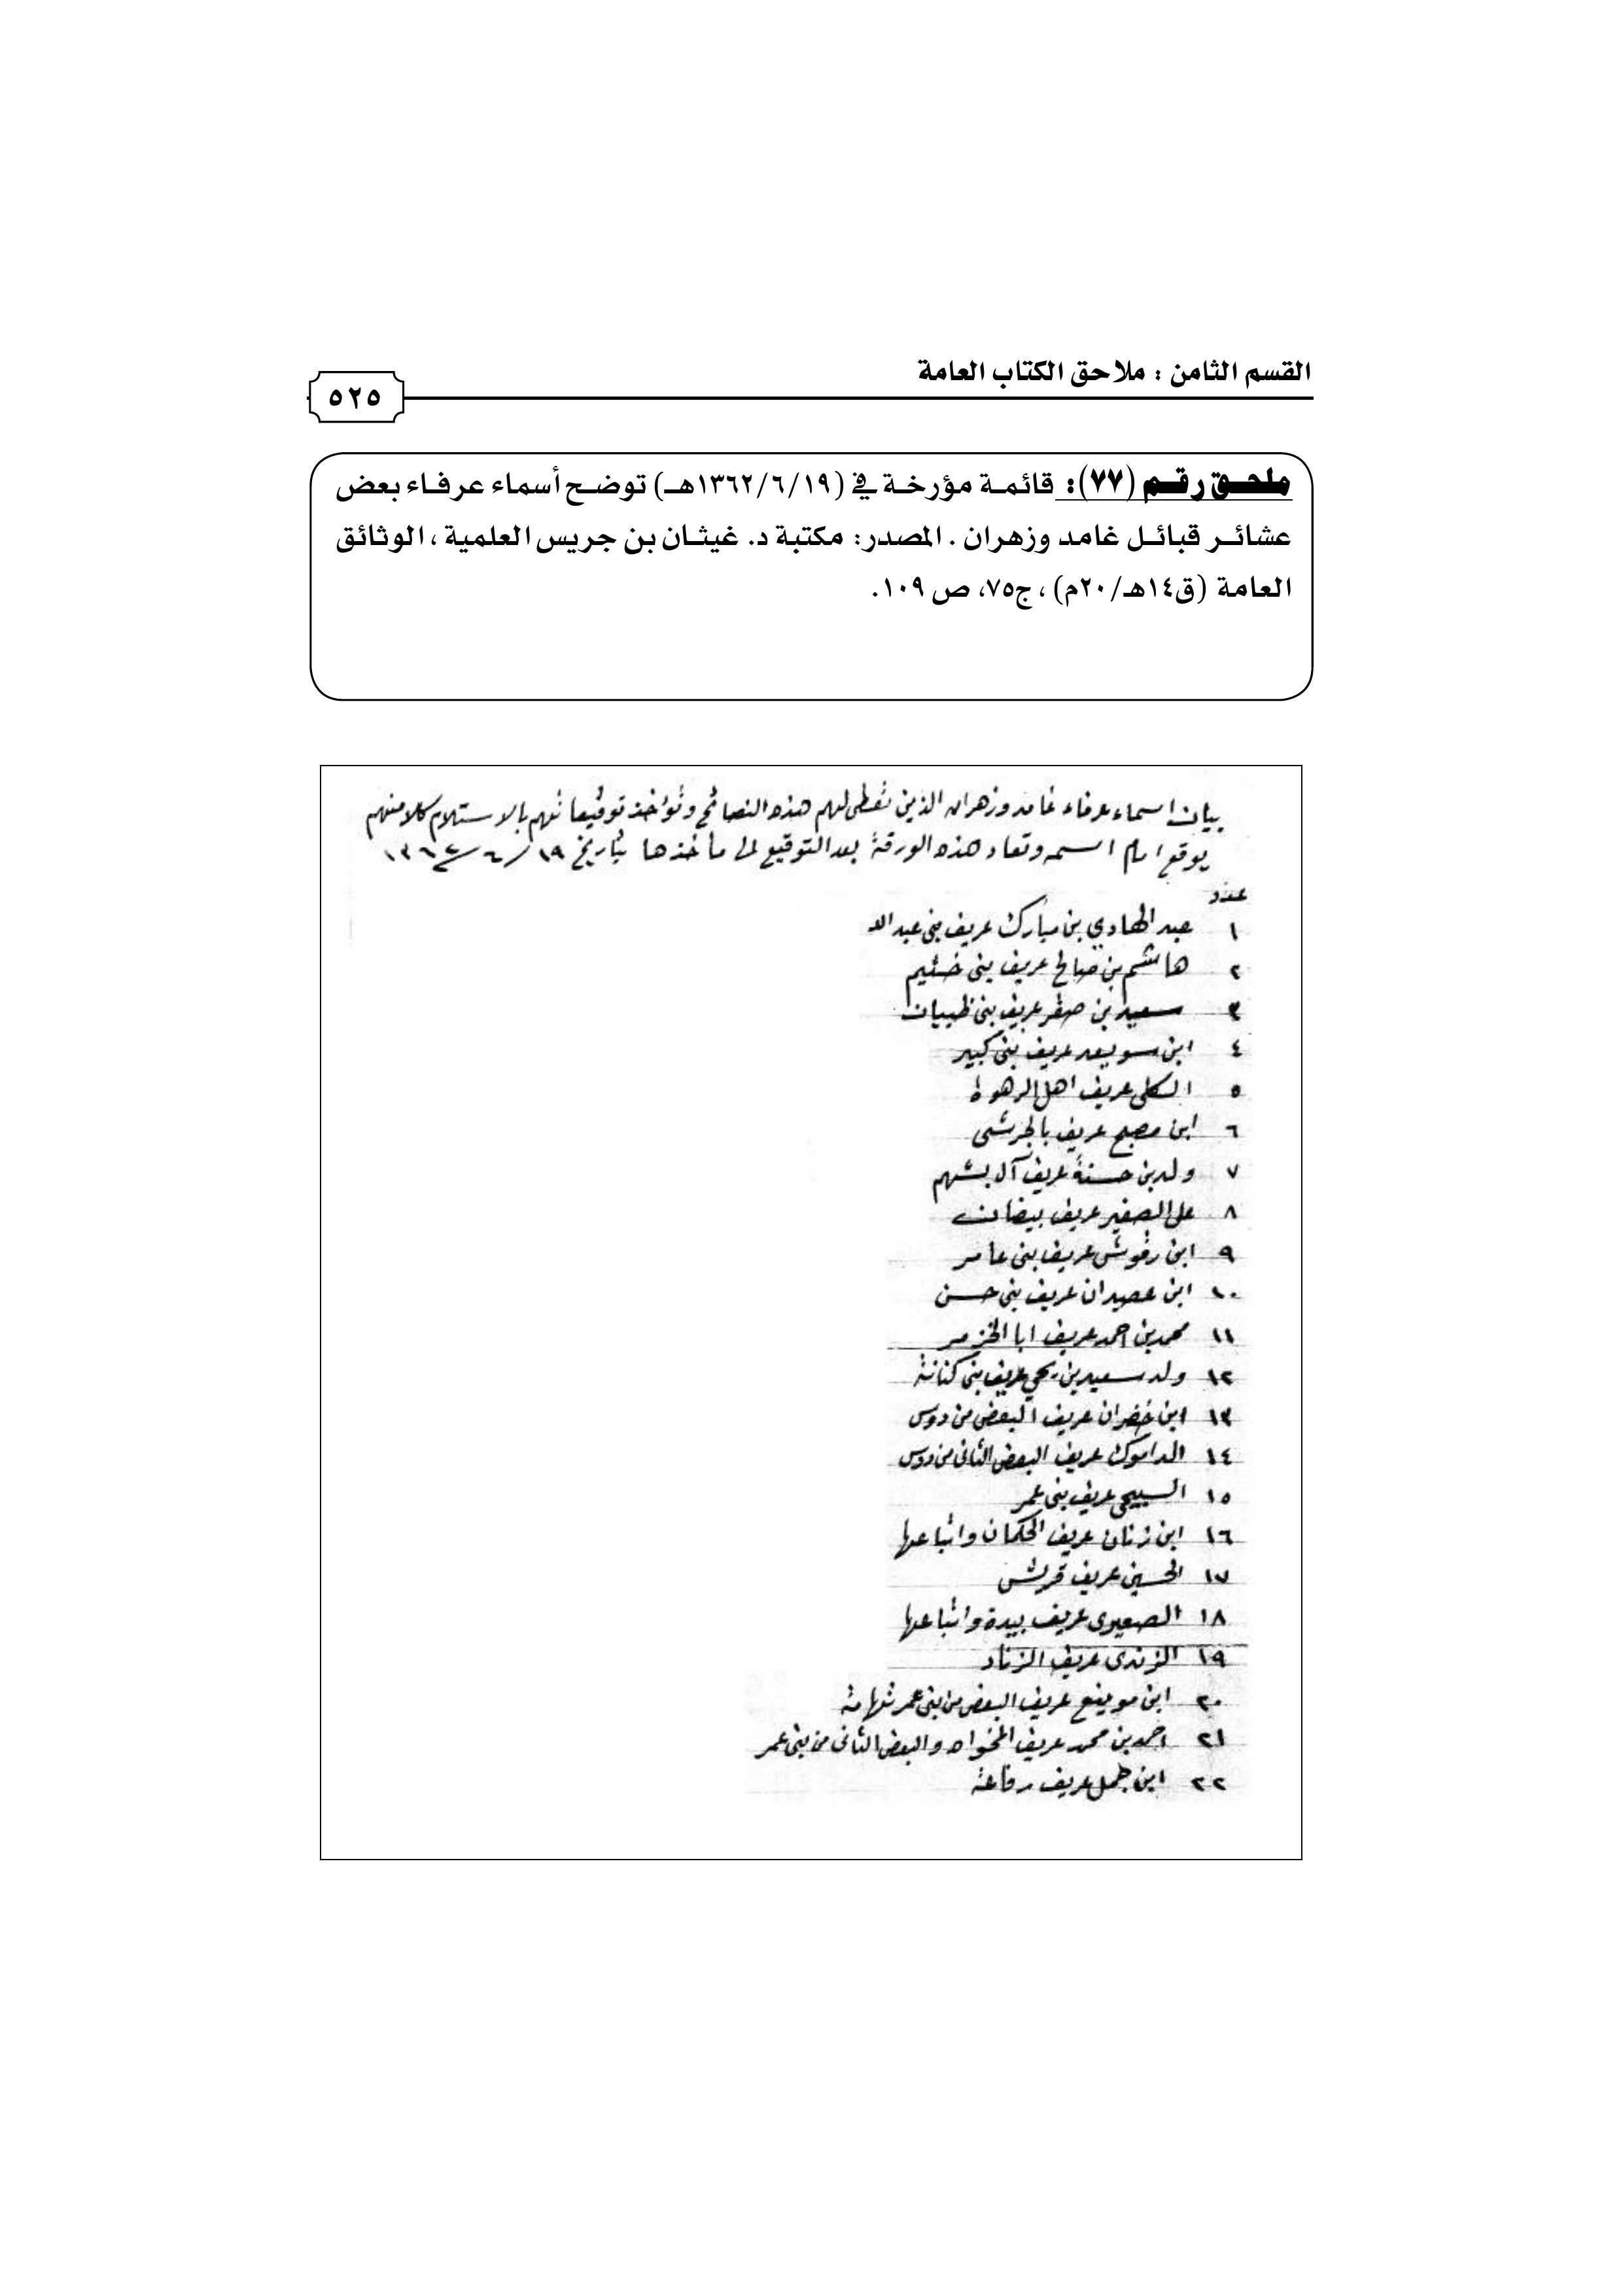 القسم الثامن : ملاحق الكتاب العامة
٥٢٥
ملحق رقم (٧٧): قائمة مؤرخة في (١٣٦٢/٦/١٩هـ) توضح أسماء عرفاء بعض
عشائر قبائل غامد وزهران . المصدر: مكتبة د. غيثان بن جريس العلمية ، الوثائق
العامة (ق١٤هـ/٢٠م) ، ج٧٥، ص ١٠٩.
بيان اسماء عرفاء غامد وزهران الذين تعطى لهم هذه النصائح وتؤخذ توقيعاتهم بالاستلام كلا منهم
يوقع امام اسمه وتعاد هذه الورقة بعد التوقيع الى مأخذها بتاريخ ١٩/٦/١٣٦٢
عدد
١ عبد الهادي بن مبارك عريف بنى عبد الله
٢ هاشم بن صالح عريف بنى خثيم
٣ سعيد بن صقر عريف بنى ظبيان
٤ ابن سويعد عريف بنى كبير
٥ الكلى عريف اهل الرهوة
٦ ابن مصبح عريف بالجرشى
٧ ولد بن حسنة عريف آل بشهم
٨ على الصغير عريف بيضان
٩ ابن رقوش عريف بنى عامر
١٠ ابن عصيدان عريف بنى حسن
١١ محمد بن احمد عريف ابا الخزمر
١٢ ولد سعيد بن يحي عريف بنى كنانة
١٣ ابن خضران عريف البعض من دوس
١٤ الداموك عريف البعض الثانى من دوس
١٥ السبيحى عريف بنى عمر
١٦ ابن زنان عريف الحكمان واتباعها
١٧ الحسين عريف قريش
١٨ الصعيرى عريف بيدة واتباعها
١٩ الزندى عريف الزناد
٢٠ ابن مويفع عريف البعض من بنى عمر تهامة
٢١ احمد بن محمد عريف المخواه والبعض الثانى من بنى عمر
٢٢ ابن عريف رفاعة